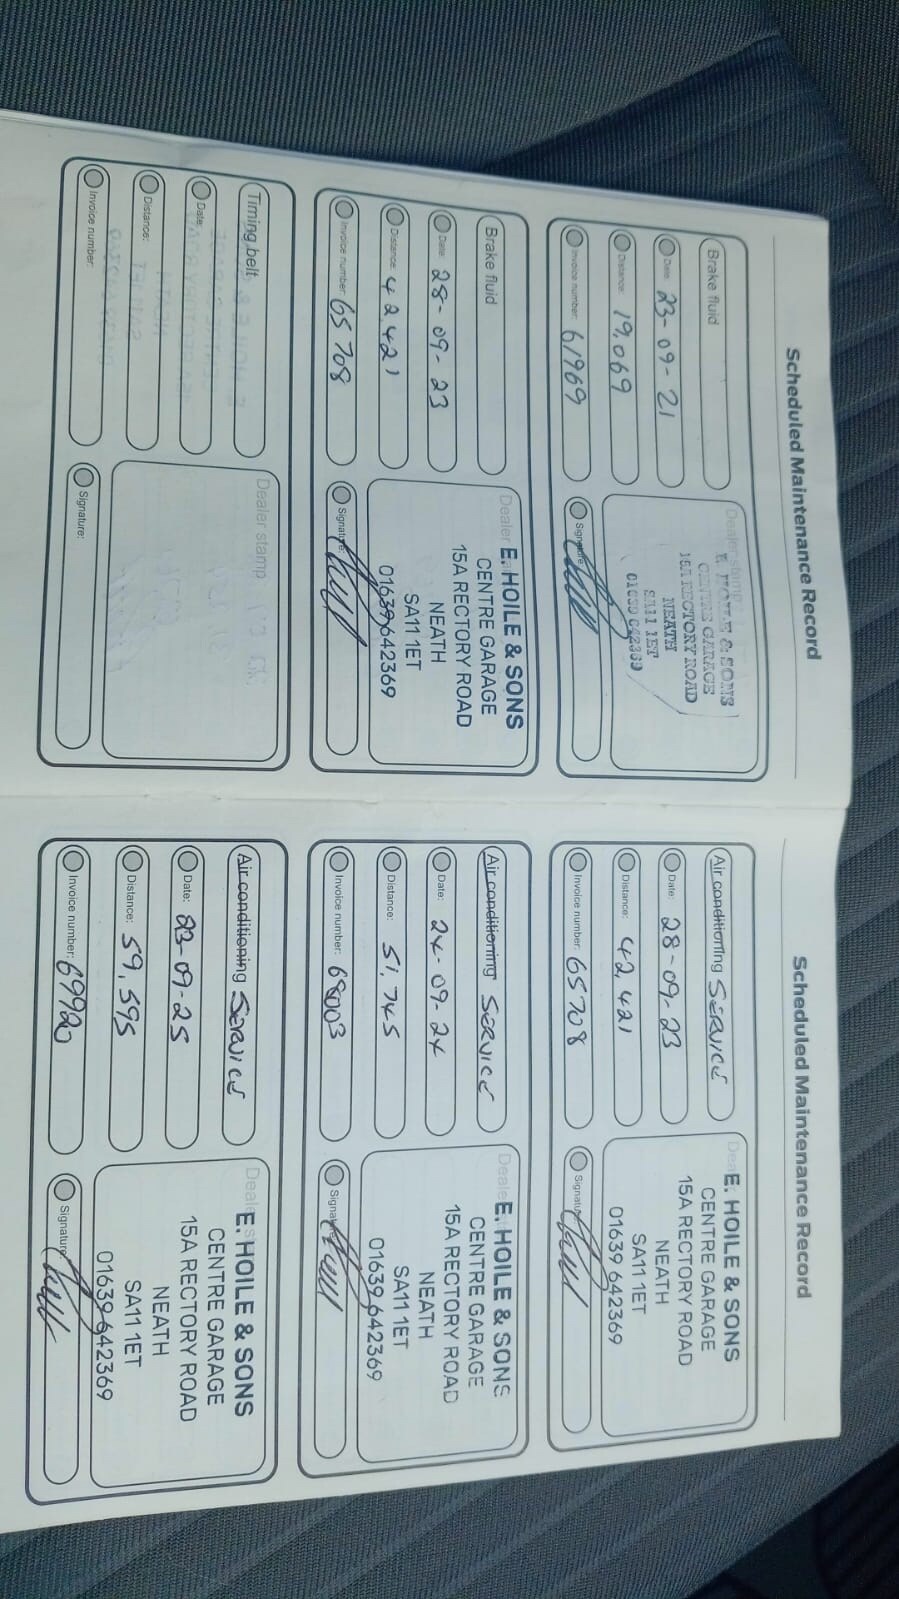 Scheduled Maintenance Record
Brake fluid
Date: 23-09-21
Distance: 19,069
Invoice number: 61969
Dealer stamp
E. HOILE & SONS
CENTRE GARAGE
15A RECTORY ROAD
NEATH
SA11 1ET
01639 642369
Signature:
Brake fluid
Date: 28-09-23
Distance: 42,421
Invoice number: 65708
Dealer
E. HOILE & SONS
CENTRE GARAGE
15A RECTORY ROAD
NEATH
SA11 1ET
01639 642369
Signature:
Timing belt
Date:
Distance:
Invoice number:
Dealer stamp
Signature:
Scheduled Maintenance Record
Air conditioning SERVICE
Date: 28-09-23
Distance: 42,421
Invoice number: 65708
E. HOILE & SONS
CENTRE GARAGE
15A RECTORY ROAD
NEATH
SA11 1ET
01639 642369
Signature:
Air conditioning SERVICE
Date: 24-09-24
Distance: 51,745
Invoice number: 68003
E. HOILE & SONS
CENTRE GARAGE
15A RECTORY ROAD
NEATH
SA11 1ET
01639 642369
Signature:
Air conditioning SERVICE
Date: 23-09-25
Distance: 59,595
Invoice number: 69920
E. HOILE & SONS
CENTRE GARAGE
15A RECTORY ROAD
NEATH
SA11 1ET
01639 642369
Signature: